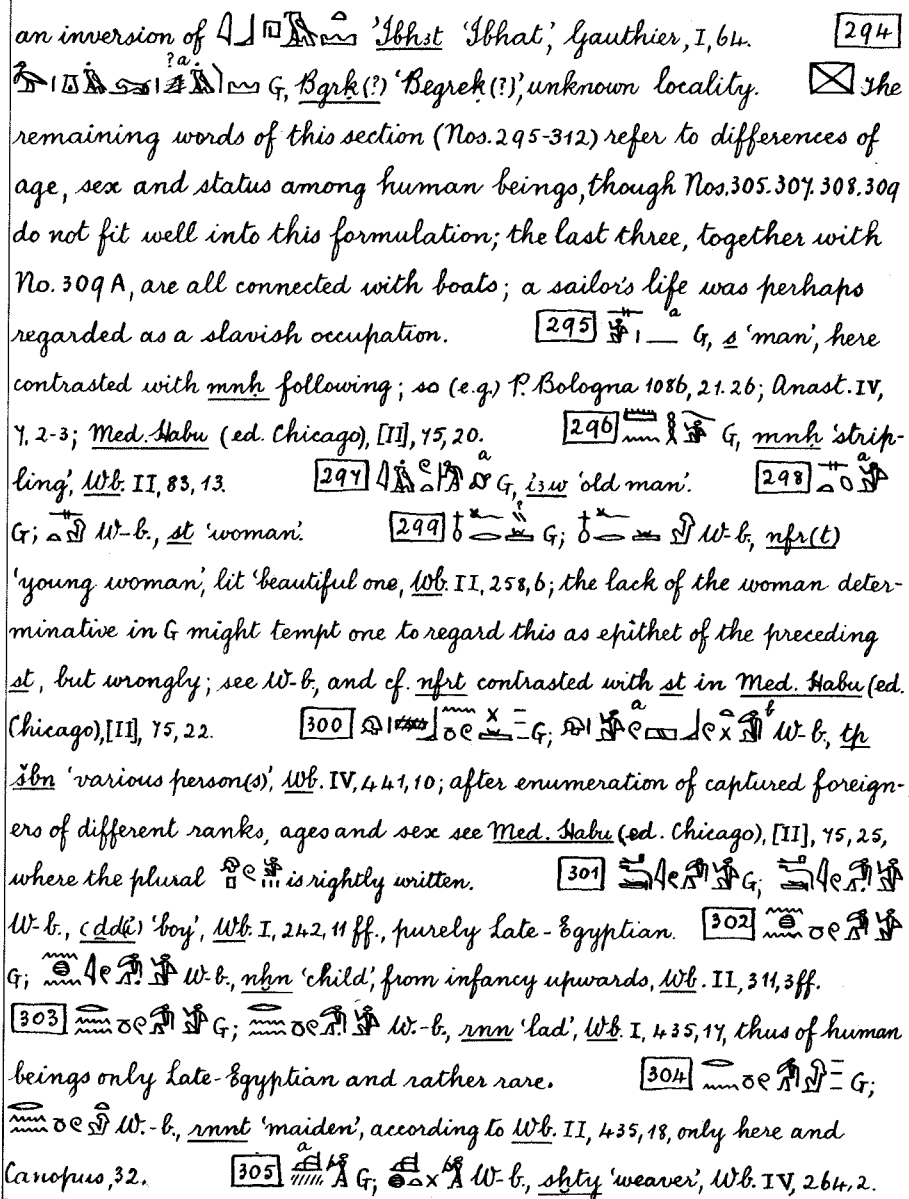 an inversion of ’Ibhꜣt ‘Ibhat’, Gauthier, I, 64. 294
?a G, Bgrḳ(?) ‘Begreḳ(?)’, unknown locality. The
remaining words of this section (Nos. 295-312) refer to differences of
age, sex and status among human beings, though Nos. 305. 307. 308. 309
do not fit well into this formulation; the last three, together with
No. 309 A, are all connected with boats; a sailor's life was perhaps
regarded as a slavish occupation. 295 a G, s ‘man’, here
contrasted with mnḥ following; so (e.g.) P. Bologna 1086, 21. 26; Anast. IV,
7, 2-3; Med. Habu (ed. Chicago), [II], 75, 20. 296 G, mnḥ ‘strip-
ling’, Wb. II, 83, 13. 297 a G, iꜣw ‘old man’. 298 a
G; W-b., st ‘woman’. 299 G; W-b., nfr(t)
‘young woman’, lit ‘beautiful one, Wb. II, 258, 6; the lack of the woman deter-
minative in G might tempt one to regard this as epithet of the preceding
st, but wrongly; see W-b., and cf. nfrt contrasted with st in Med. Habu (ed.
Chicago), [II], 75, 22. 300 G; a b W-b., tp
šbn ‘various person(s)’, Wb. IV, 441, 10; after enumeration of captured foreign-
ers of different ranks, ages and sex see Med. Habu (ed. Chicago), [II], 75, 25,
where the plural is rightly written. 301 G;
W-b., ꜥdd(i) ‘boy’, Wb. I, 242, 11 ff., purely Late-Egyptian. 302
G; W-b., nḫn ‘child’, from infancy upwards, Wb. II, 311, 3ff.
303 G; W.-b., rnn ‘lad’, Wb. I, 435, 17, thus of human
beings only Late-Egyptian and rather rare. 304 G;
W.-b., rnnt ‘maiden’, according to Wb. II, 435, 18, only here and
Canopus, 32. 305 a G; W-b., sḫty ‘weaver’, Wb. IV, 264, 2.